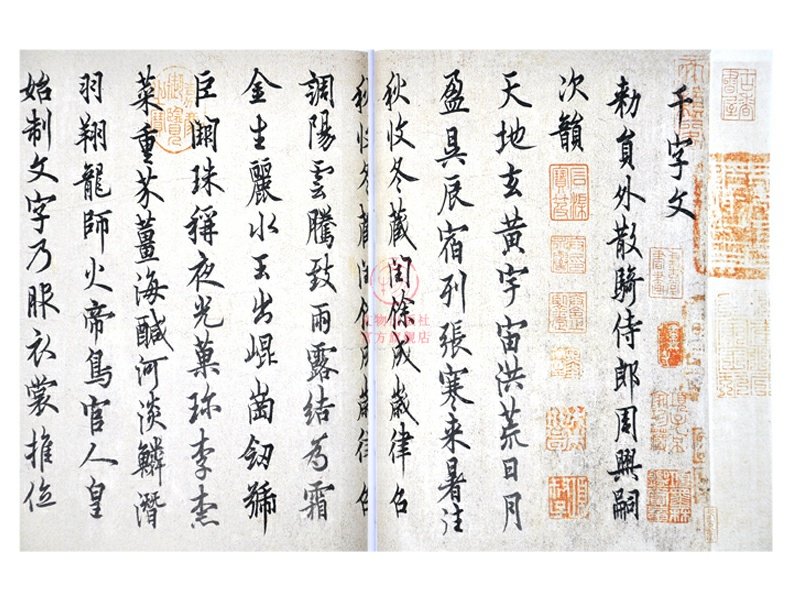 千字文
勑員外散騎侍郎周興嗣
次韻
天地玄黄宇宙洪荒日月
盈昃辰宿列張寒来暑往
秋收冬藏閏餘成歲律召
調陽雲騰致雨露結為霜
金生麗水玉出崐崗劒號
巨闕珠稱夜光菓珎李柰
菜重芥薑海醎河淡鱗潛
羽翔龍師火帝鳥官人皇
始制文字乃服衣裳推位
文物出版社
官方旗舰店